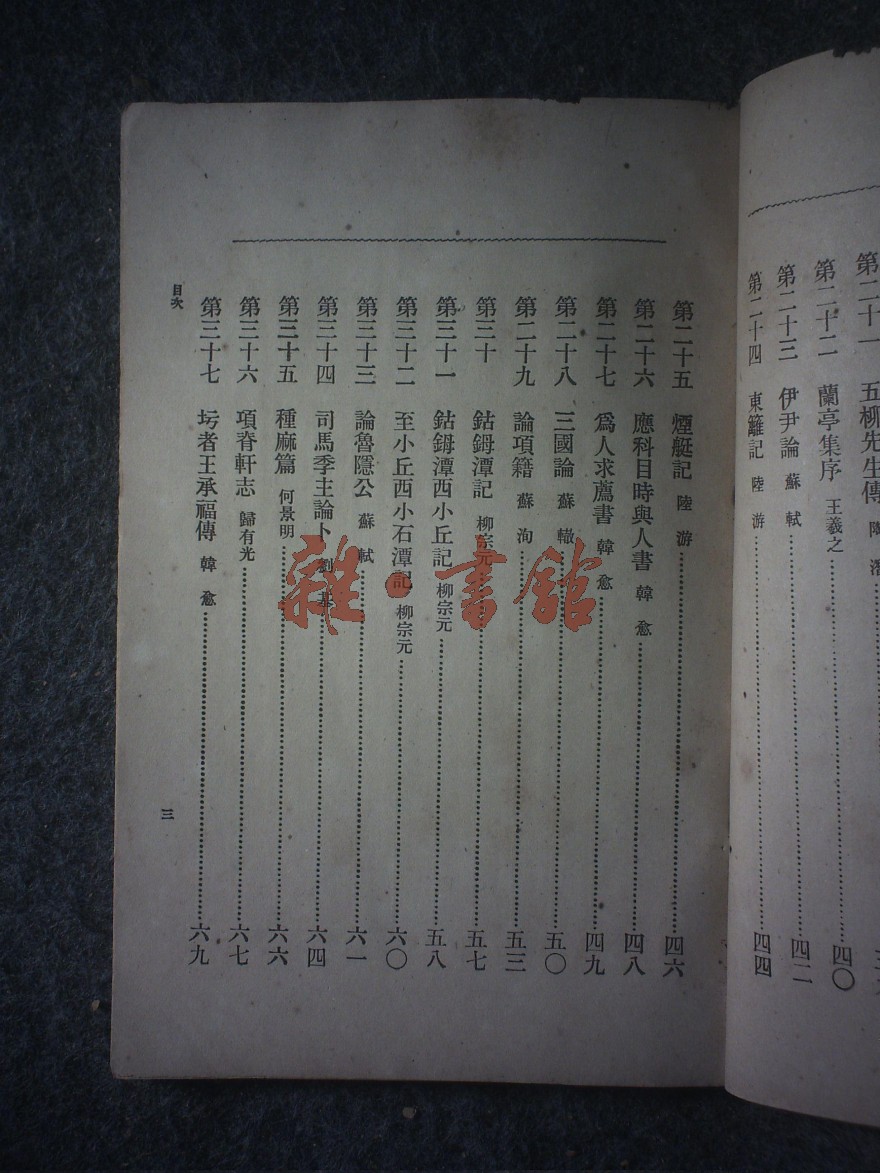 第二十一 五柳先生傳 陶潛
第二十二 蘭亭集序 王羲之 四〇
第二十三 伊尹論 蘇軾 四二
第二十四 東籬記 陸游 四四
第二十五 煙艇記 陸游 四六
第二十六 應科目時與人書 韓愈 四八
第二十七 爲人求薦書 韓愈 四九
第二十八 三國論 蘇轍 五〇
第二十九 論項籍 蘇洵 五三
第三十 鈷鉧潭記 柳宗元 五七
第三十一 鈷鉧潭西小丘記 柳宗元 五八
第三十二 至小丘西小石潭記 柳宗元 六〇
第三十三 論魯隱公 蘇軾 六一
第三十四 司馬季主論卜 劉基 六四
第三十五 種麻篇 何景明 六六
第三十六 項脊軒志 歸有光 六七
第三十七 圬者王承福傳 韓愈 六九
目次
三
雜·書館